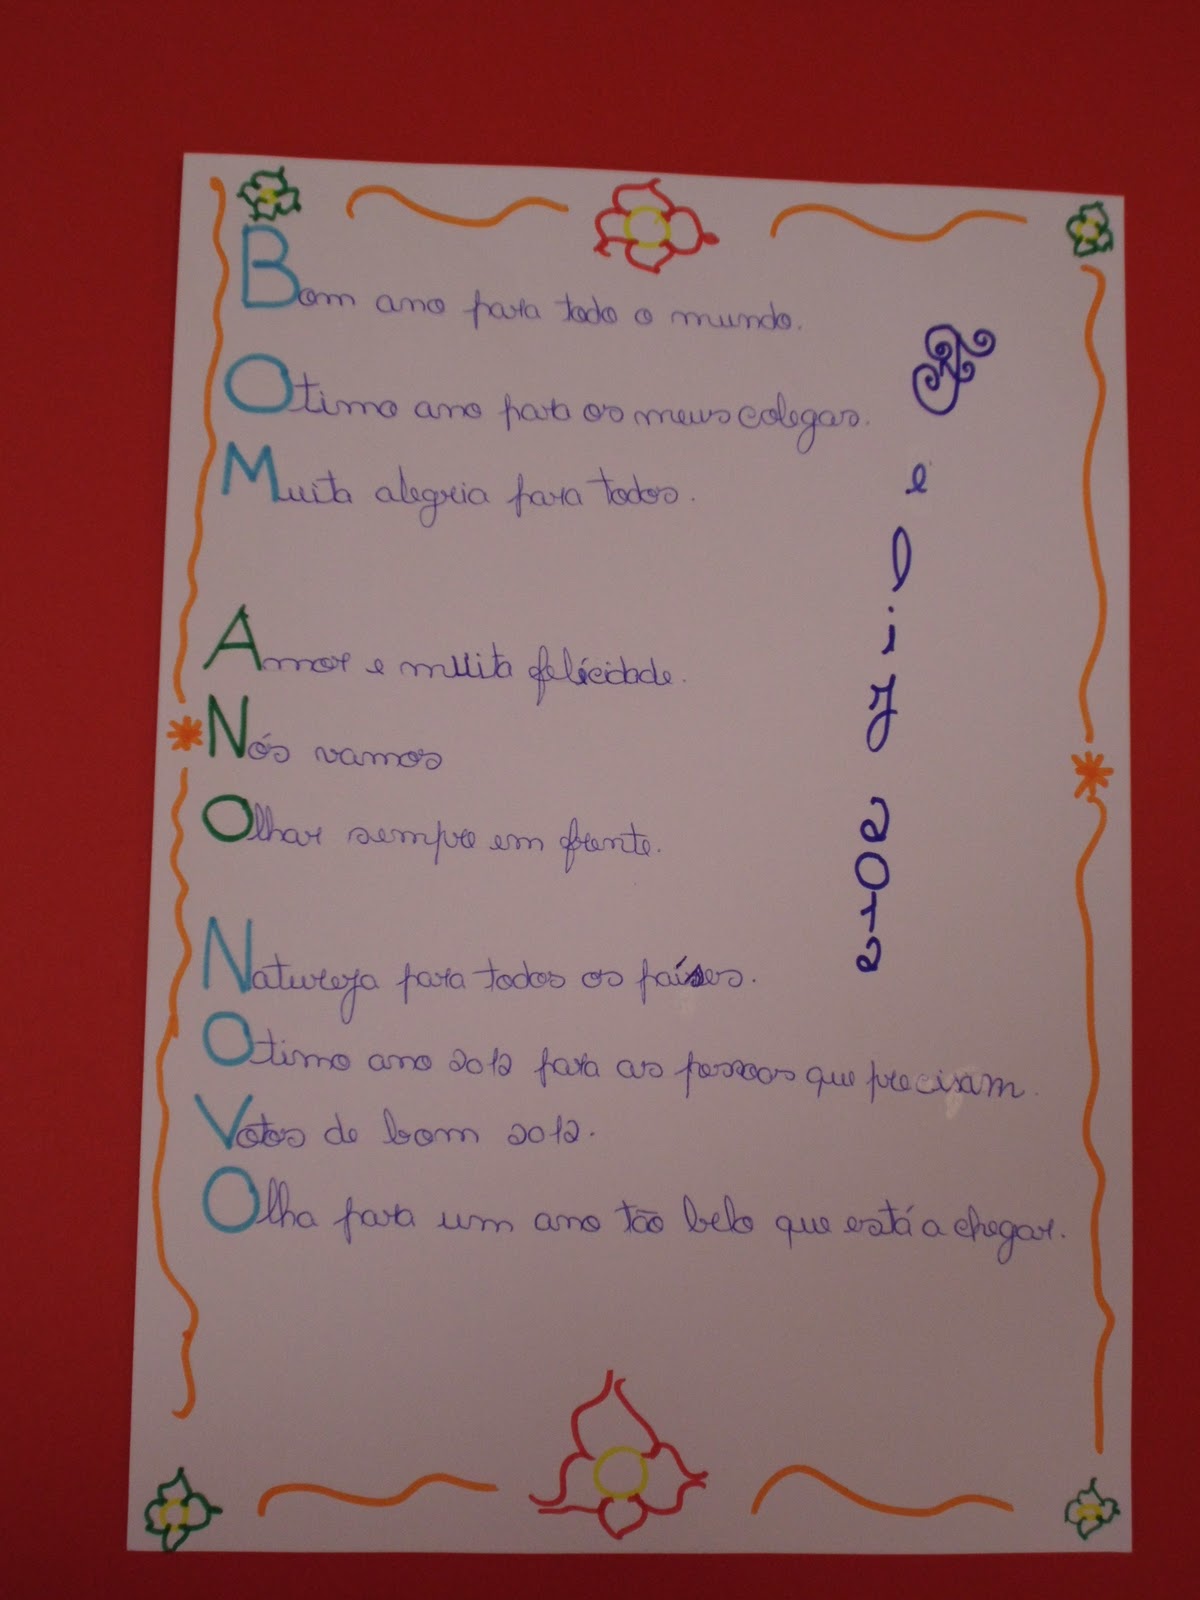 Bom ano para todo o mundo.
Otimo ano para os meus colegas.
Muita alegria para todos.
Amor e muita felicidade.
Nós vamos
Olhar sempre em frente.
Natureza para todos os países.
Otimo ano 2012 para as pessoas que precisam.
Votos de bom 2012.
Olha para um ano tão belo que está a chegar.
Feliz 2012